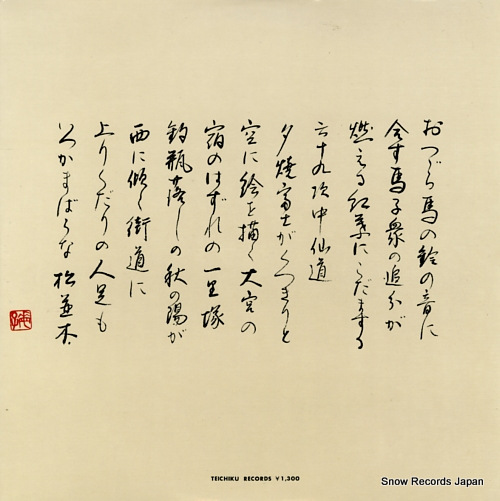 おつづら馬の鈴の音に
合す馬子衆の追分が
燃える紅葉にこだまする
六十九次中仙道
夕焼富士がくつきりと
空に絵を描く大宮の
宿のはずれの一里塚
釣瓶落しの秋の陽が
西に傾く街道に
上りくだりの人足も
いつかまばらな松並木
TEICHIKU RECORDS ¥1,300
Snow Records Japan